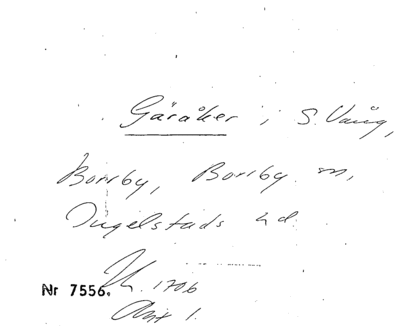 Gäråker i S. Vång,
Borrby, Borrby sn,
Ingelstads hd.
Nr 7556. 1706
1.